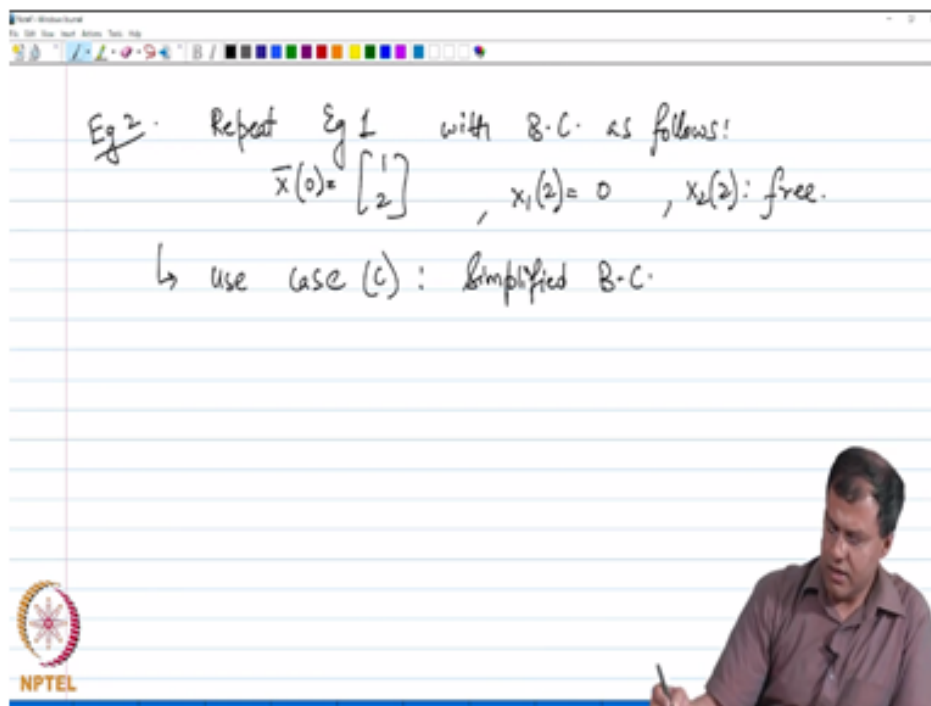 Eg 2. Repeat Eg 1 with B.C. as follows:
x̄(0) = [1 2], x₁(2) = 0, x₂(2): free.
↳ use case (c): Simplified B.C.
NPTEL